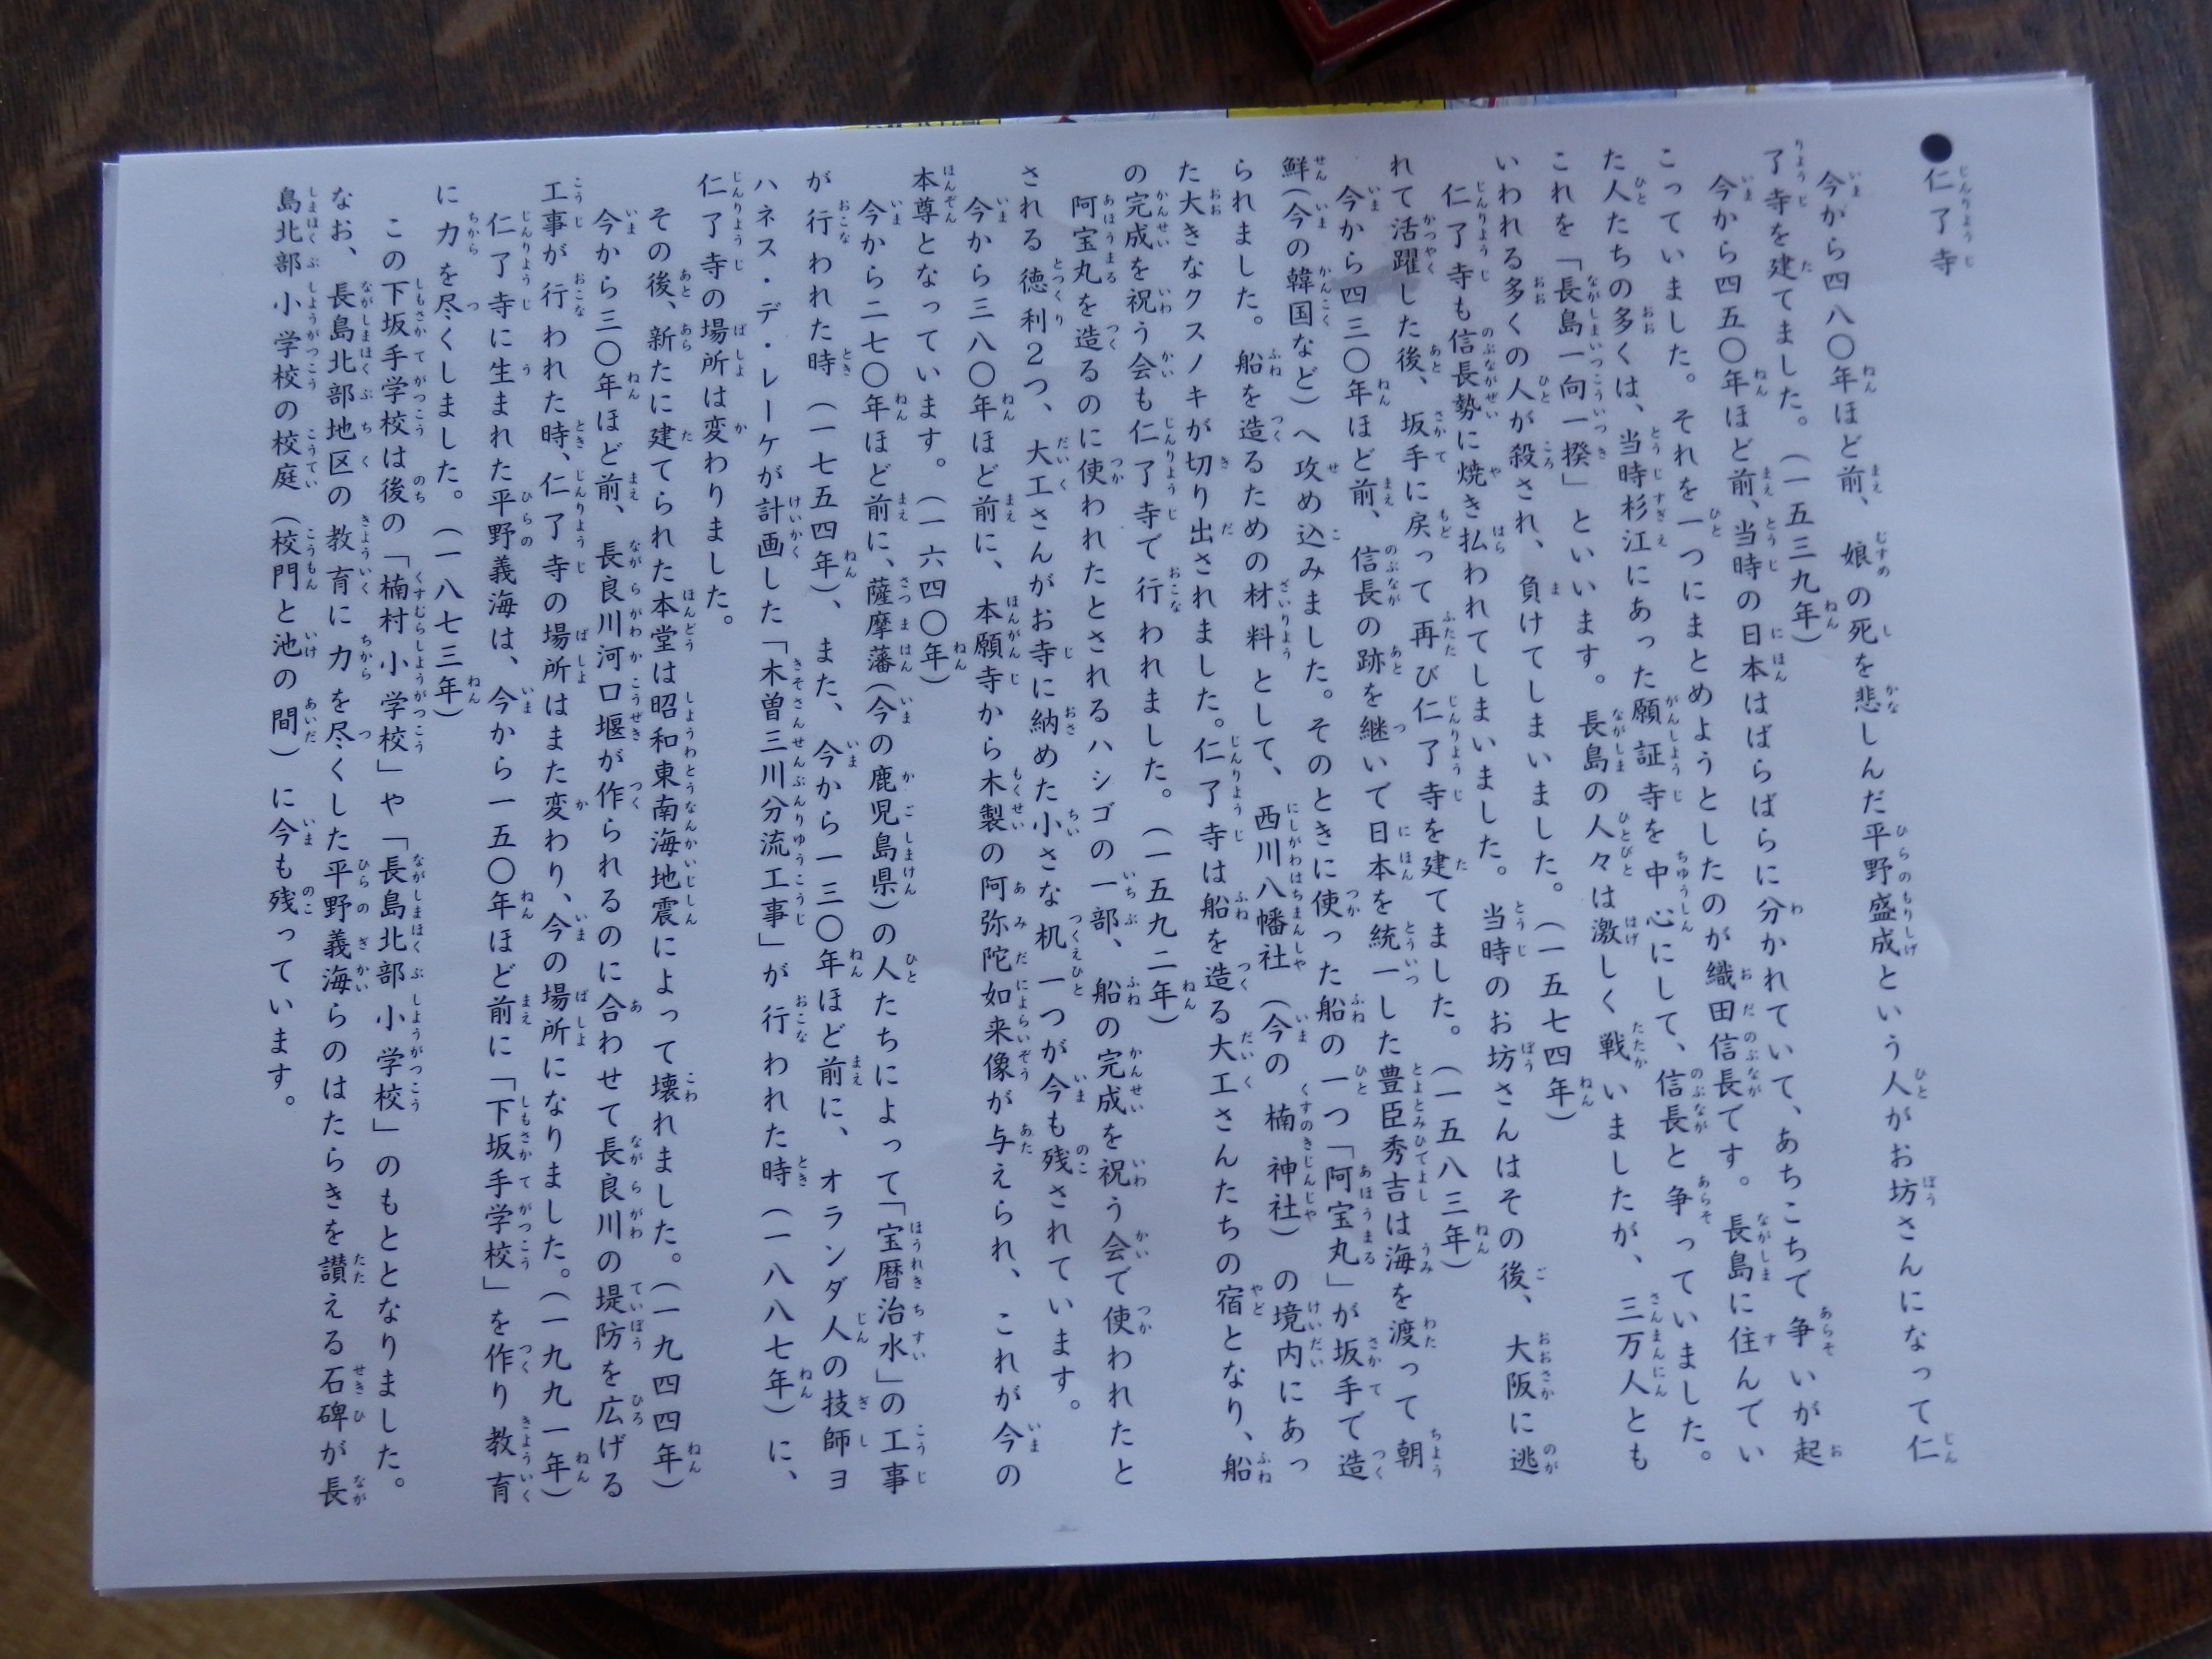 ●仁了寺
今から四八〇年ほど前、娘の死を悲しんだ平野盛成という人がお坊さんになって仁
了寺を建てました。(一五三九年)
今から四五〇年ほど前、当時の日本はばらばらに分かれていて、あちこちで争いが起
こっていました。それを一つにまとめようとしたのが織田信長です。長島に住んでい
た人たちの多くは、当時杉江にあった願証寺を中心にして、信長と争っていました。
これを「長島一向一揆」といいます。長島の人々は激しく戦いましたが、三万人とも
いわれる多くの人が殺され、負けてしまいました。(一五七四年)
仁了寺も信長勢に焼き払われてしまいました。当時のお坊さんはその後、大阪に逃
れて活躍した後、坂手に戻って再び仁了寺を建てました。(一五八三年)
今から四三〇年ほど前、信長の跡を継いで日本を統一した豊臣秀吉は海を渡って朝
鮮(今の韓国など)へ攻め込みました。そのときに使った船の一つ「阿宝丸」が坂手で造
られました。船を造るための材料として、西川八幡社(今の楠神社)の境内にあっ
た大きなクスノキが切り出されました。仁了寺は船を造る大工さんたちの宿となり、船
の完成を祝う会も仁了寺で行われました。(一五九二年)
阿宝丸を造るのに使われたとされるハシゴの一部、船の完成を祝う会で使われたと
される徳利2つ、大工さんがお寺に納めた小さな机一つが今も残されています。
今から三八〇年ほど前に、本願寺から木製の阿弥陀如来像が与えられ、これが今の
本尊となっています。(一六四〇年)
今から二七〇年ほど前に、薩摩藩(今の鹿児島県)の人たちによって「宝暦治水」の工事
が行われた時(一七五四年)、また、今から一三〇年ほど前に、オランダ人の技師ヨ
ハネス・デ・レーケが計画した「木曽三川分流工事」が行われた時(一八八七年)に、
仁了寺の場所は変わりました。
その後、新たに建てられた本堂は昭和東南海地震によって壊れました。(一九四四年)
今から三〇年ほど前、長良川河口堰が作られるのに合わせて長良川の堤防を広げる
工事が行われた時、仁了寺の場所はまた変わり、今の場所になりました。(一九九一年)
仁了寺に生まれた平野義海は、今から一五〇年ほど前に「下坂手学校」を作り教育
に力を尽くしました。(一八七三年)
この下坂手学校は後の「楠村小学校」や「長島北部小学校」のもととなりました。
なお、長島北部地区の教育に力を尽くした平野義海らのはたらきを讃える石碑が長
島北部小学校の校庭(校門と池の間)に今も残っています。